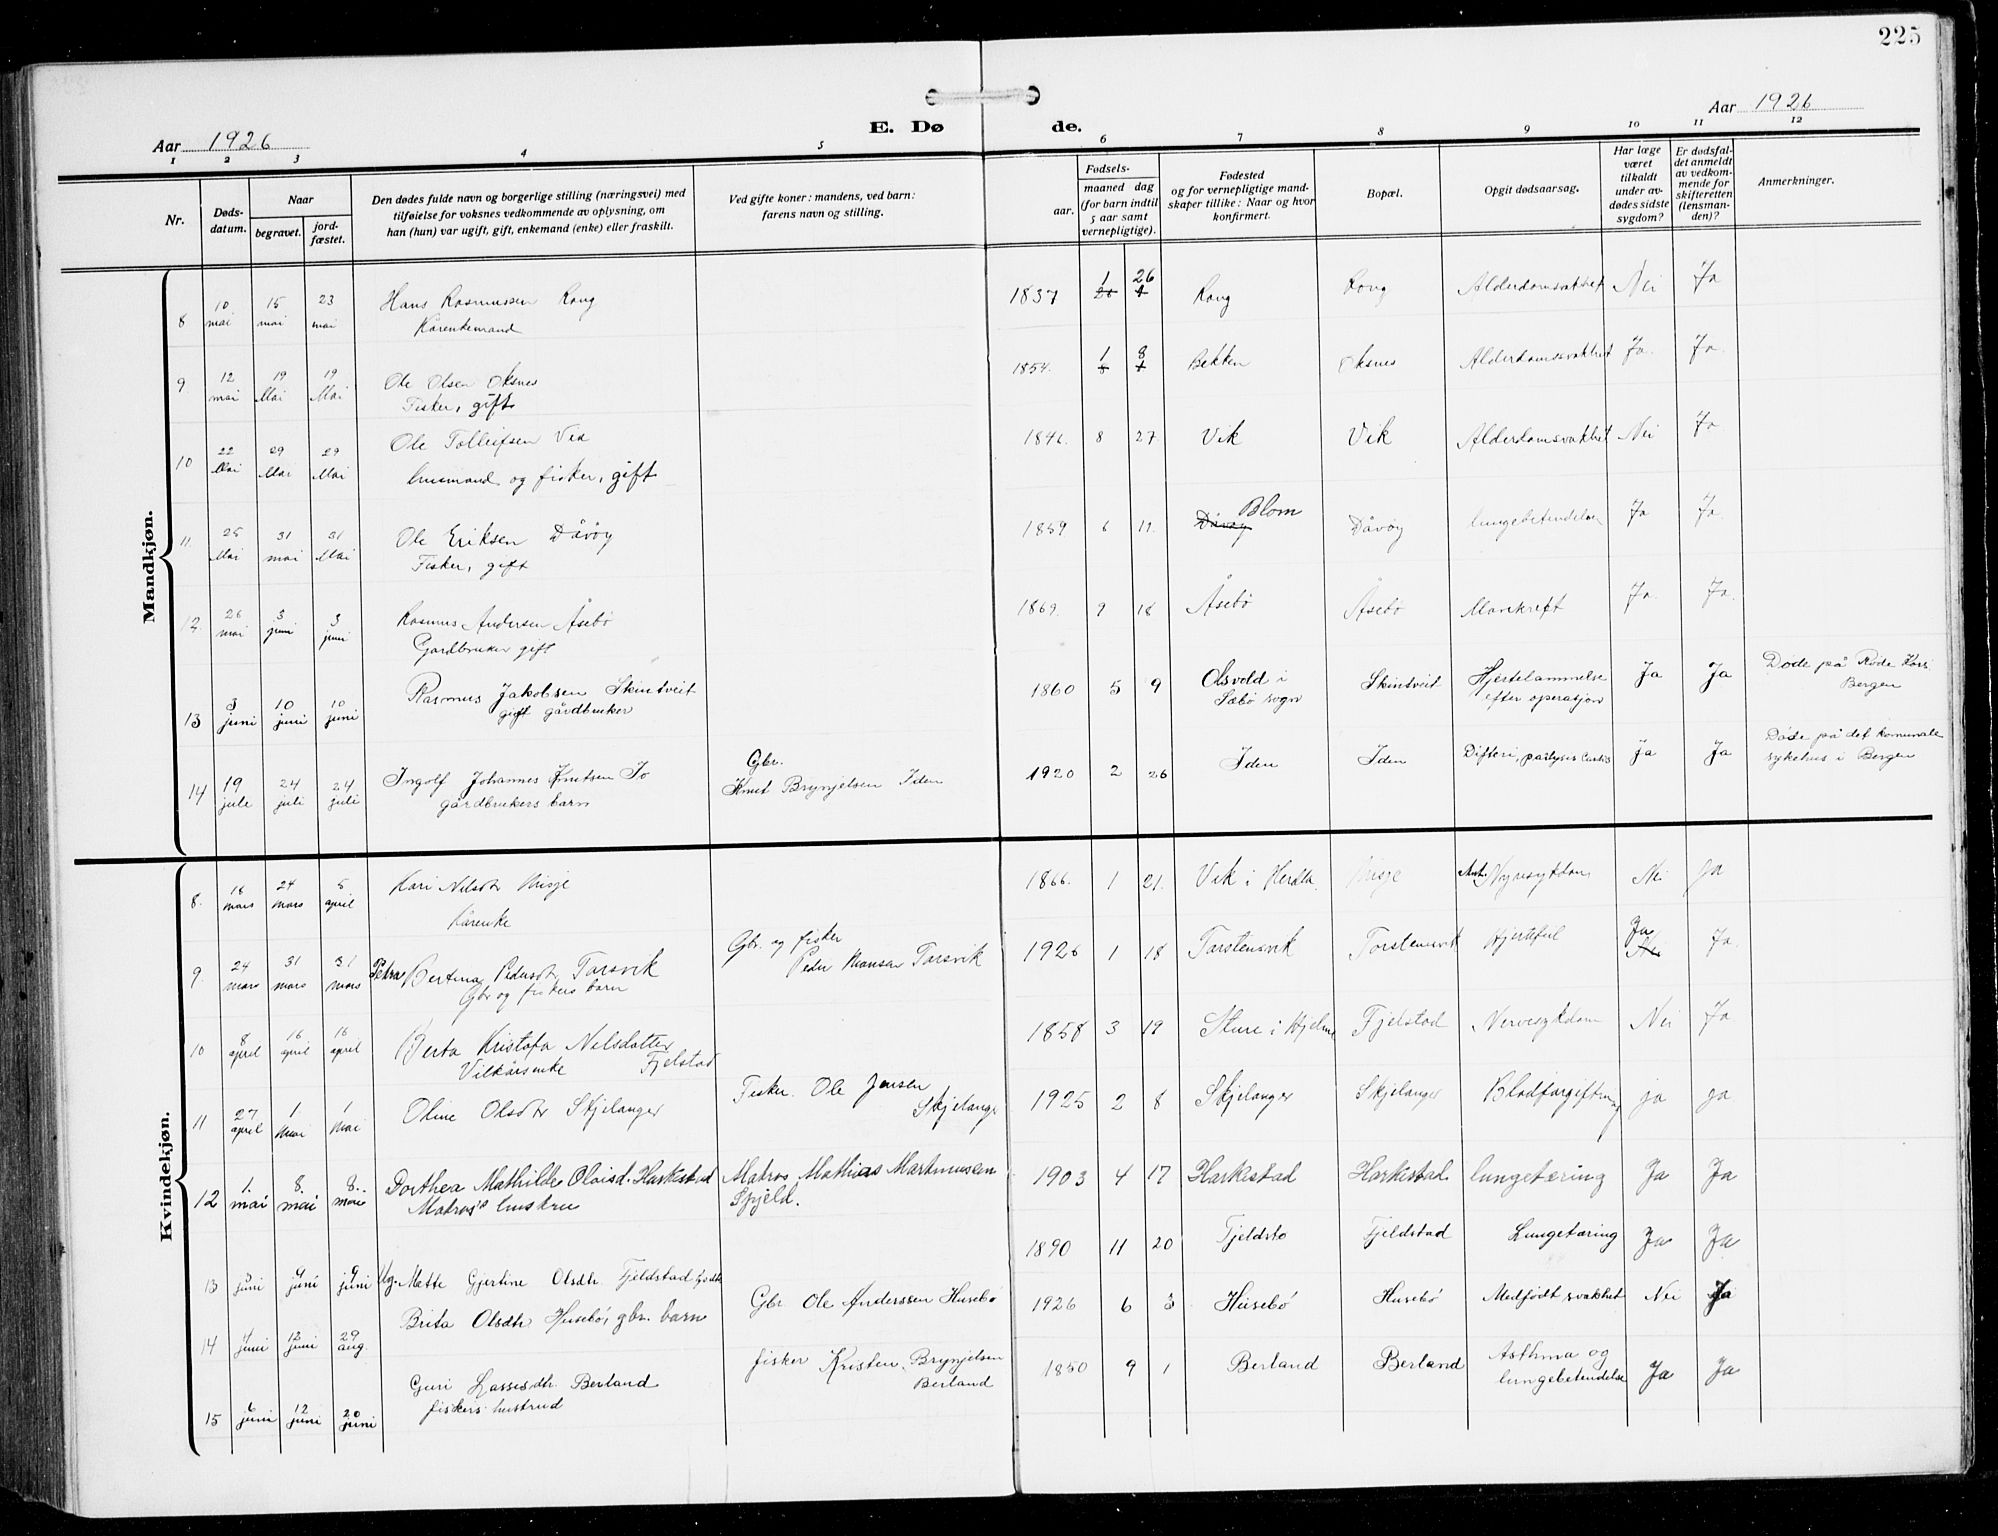 225
Aar 1926
E. Dø
de.
Aar 1926
1 2 3 4 5 6 7 8 9 10 11 12
Nr.
Døds-
datum.
Naar
begravet.
jord-
fæstet.
Den dødes fulde navn og borgerlige stilling (næringsvei) med
tilføielse for voksnes vedkommende av oplysning, om
han (hun) var ugift, gift, enkemand (enke) eller fraskilt.
Ved gifte koner: mandens, ved barn:
farens navn og stilling.
Fødsels-
aar.
maaned dag
(for barn indtil
5 aar samt
vernepligtige).
Fødested
og for vernepligtige mand-
skaper tillike: Naar og hvor
konfirmert.
Bopæl.
Opgit dødsaarsag.
Har læge
været
tilkaldt
under av-
dødes sidste
sygdom?
Er dødsfal-
det anmeldt
av vedkom-
mende for
skifteretten
(lensman-
den)?
Anmerkninger.
Mandkjøn.
8 10 mai 15 mai 23 mai Hans Rasmussen Rong 1837 1 26 Rong Rong Alderdomsvakhet Nei Ja
Kårenkemand
9. 12 mai 19 Mai 19 Mai Ole Olsen Oksnes 1854. 1 8 Bekken Oksnes Alderdomsvakhet Ja. Ja.
Fisker, gift
10 22 Mai 29 Mai 29 Mai Ole Tolleifsen Vik 1846. 8 27. Vik Vik Alderdomsvakhet Nei Ja.
husmand og fisker, gift
11. 25 Mai 31 mai 31 Mai Ole Eriksen Dåvöy 1859. 6 11. Dåvöy Blom Dåvöy lungebetendelse Ja Ja.
Fisker, gift
12. 26 mai 3 juni 3 juni Rasmus Andersen Åsebö 1869. 9 18 Åsebö Åsebö Mavekreft Ja. Ja.
Gardbruker gift
13 3 juni 10 juni 10 juni Rasmus Jakobsen Skintveit 1860 5 9 Olsvold i Sæbø sogn Skintveit Hjertelammelse efter operasjon Ja Ja Døde på Røde Kors Bergen
gift gårdbruker
14 19 jule 24 juli 24 juli Ingolf Johannes Knutsen Io Gbr. Knut Brynjelsen Iden 1920 2 26 Iden Iden Difteri, Ja Ja Døde på det komunale sykehus i Bergen
gårdbrukers barn
Kvindekjøn.
8. 18 mars 24 mars 5 april Kari Nilsdtr Misje 1866. 1 21. Vik i Herdla Misje Nyresykdom Nei Ja
Kårenke
9. 24 mars 31 mars 31 mars Petra Bertina Pedersdtr Torsvik Gbr. og fisker Peder Monsen Torsvik 1926 1 18 Torstensvik Torstensvik Hjertfeil Ja Ja.
Gbr og fiskers barn
10 8 april 16 april 16 april Berta Kristofa Nilsdatter Fjelstad 1858 3 19 Sture i Hjelme Fjelstad Nervesykdom Nei Ja
Vilkårsenke
11 27 april 1 Mai 1 Mai Oline Olsdtr Skjelanger Fisker Ole Jensen Skjelanger 1925 2 8 Skjelanger Skjelanger Blodforgiftning ja ja
12 1. mai 8. mai 8. mai Dorthea Mathilde Olaisd. Harkestad Matros Mathias Martinussen Spjeld. 1903 4 17 Harkestad Harkestad. lungetæring Ja Ja
Matros's hustru
13 juni 4 juni 9 juni Ug. Mette Gjertine Olsdtr. Fjeldstad 1890 11 20 Fjeldstø Fjeldstad Lungetæring Ja Ja
14 4 juni 12 juni 29 aug. Brita Olsdtr. Husebö, gbr. barn Gbr. Ole Anderssen Husebø 1926 6 3 Husebø Husebø Medfødt svakhet Nei Ja
15 6 juni 12 juni 20 juni Guri Lassesdtr. Berland fisker Kristen Brynjelsen Berland 1850 9 1 Berland Berland Asthma og lungebetendelse Ja Ja
fiskers hustrud